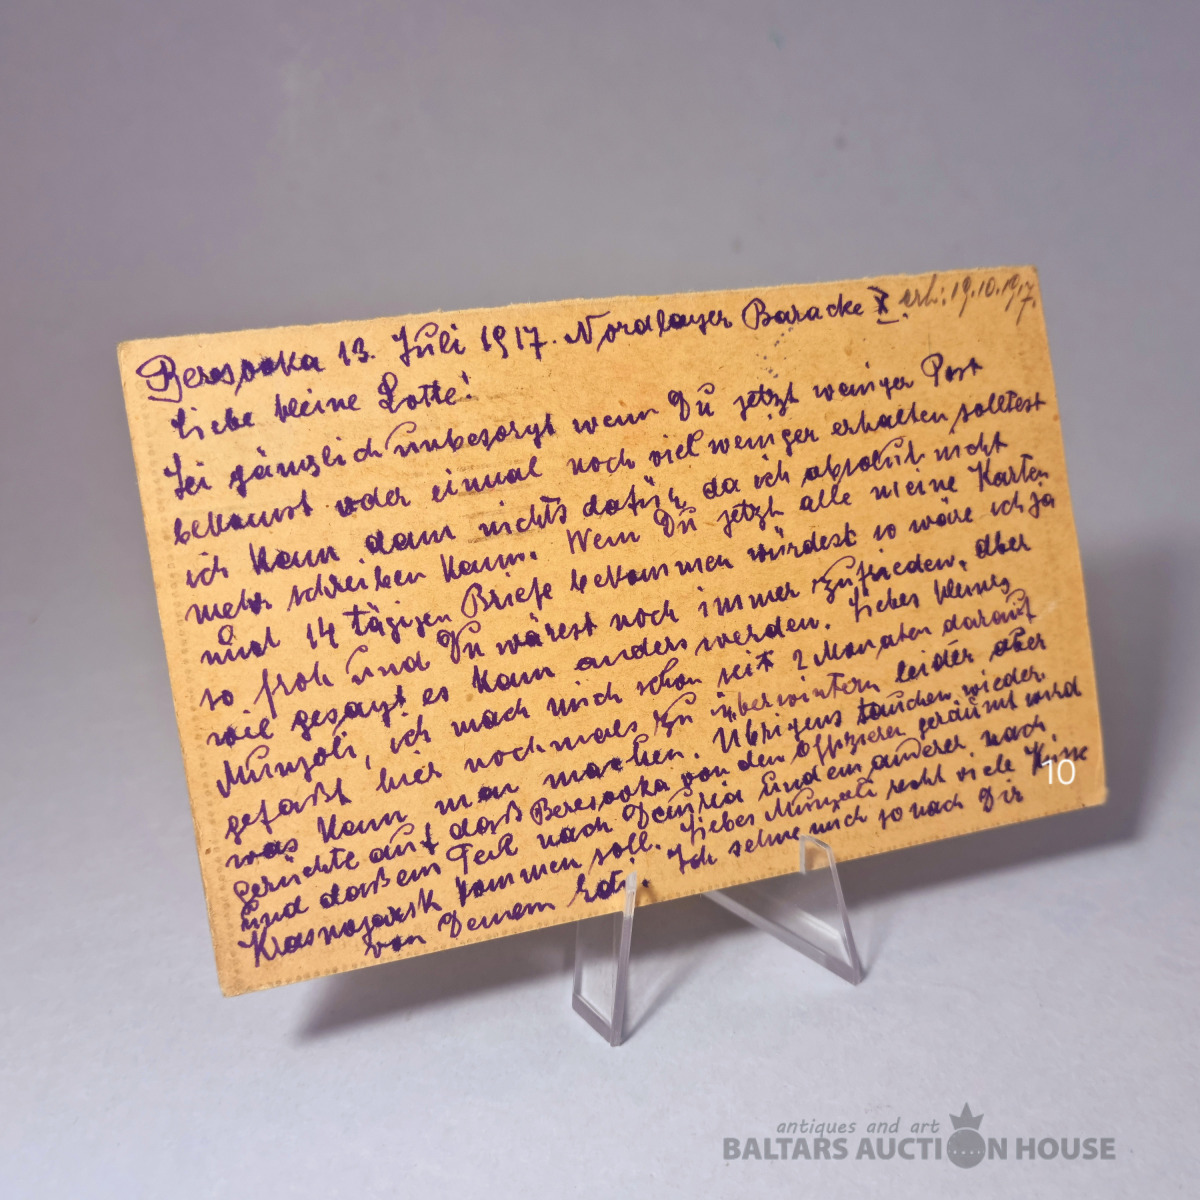 Beresovka 13. Juli 1917. Nordlager Baracke X. erh: 19.10.1917.
Liebe kleine Lotte!
Sei gänzlich unbesorgt wenn Du jetzt weniger Post
bekommst oder einmal noch viel weniger erhalten solltest
ich kann dann nichts dafür, da ich absolut nicht
mehr schreiben kann. Wenn Du jetzt alle meine Karten
und 14 tägigen Briefe bekommen würdest so wäre ich ja
so froh und Du wärest noch immer zufrieden. Aber
wie gesagt es kann anders werden. Liebes kleines
Munzoli, ich mach mich schon seit 2 Monaten darauf
gefaßt hier nochmals zu überwintern leider aber
was kann man machen. Übrigens tauchen wieder
Gerüchte auf daß Beresovka von den Offizieren geräumt wird
und daß ein Teil nach Dauria und ein anderer nach
Krasnojarsk kommen soll. Liebes Munzoli recht viele Küsse
von Deinem Edi. Ich sehne mich so nach Dir
10
antiques and art
BALTARS AUCTION HOUSE